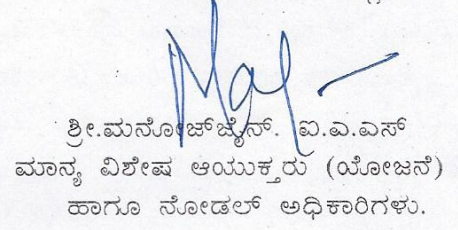 ಶ್ರೀ.ಮನೋಜ್‌ಜೈನ್. ಐ.ಎ.ಎಸ್
ಮಾನ್ಯ ವಿಶೇಷ ಆಯುಕ್ತರು (ಯೋಜನೆ)
ಹಾಗೂ ನೋಡಲ್ ಅಧಿಕಾರಿಗಳು.